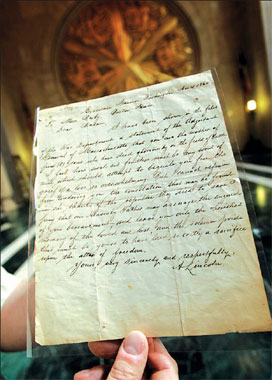 Executive Mansion
I have been shown in the files
of the War Department a statement of the Adjutant
General of Massachusetts that you are the mother of
five sons who have died gloriously on the field of
I feel how weak and fruitless must be any words of
mine which should attempt to beguile you from the
grief of a loss so overwhelming. But I cannot refrain
from tendering to you the consolation that may be found
in the thanks of the Republic they died to save. I
pray that our Heavenly Father may assuage the anguish
of your bereavement, and leave you only the cherished
memory of the loved and lost, and the solemn pride
that must be yours to have laid so costly a sacrifice
upon the altar of freedom.
Yours very sincerely and respectfully,
A. Lincoln